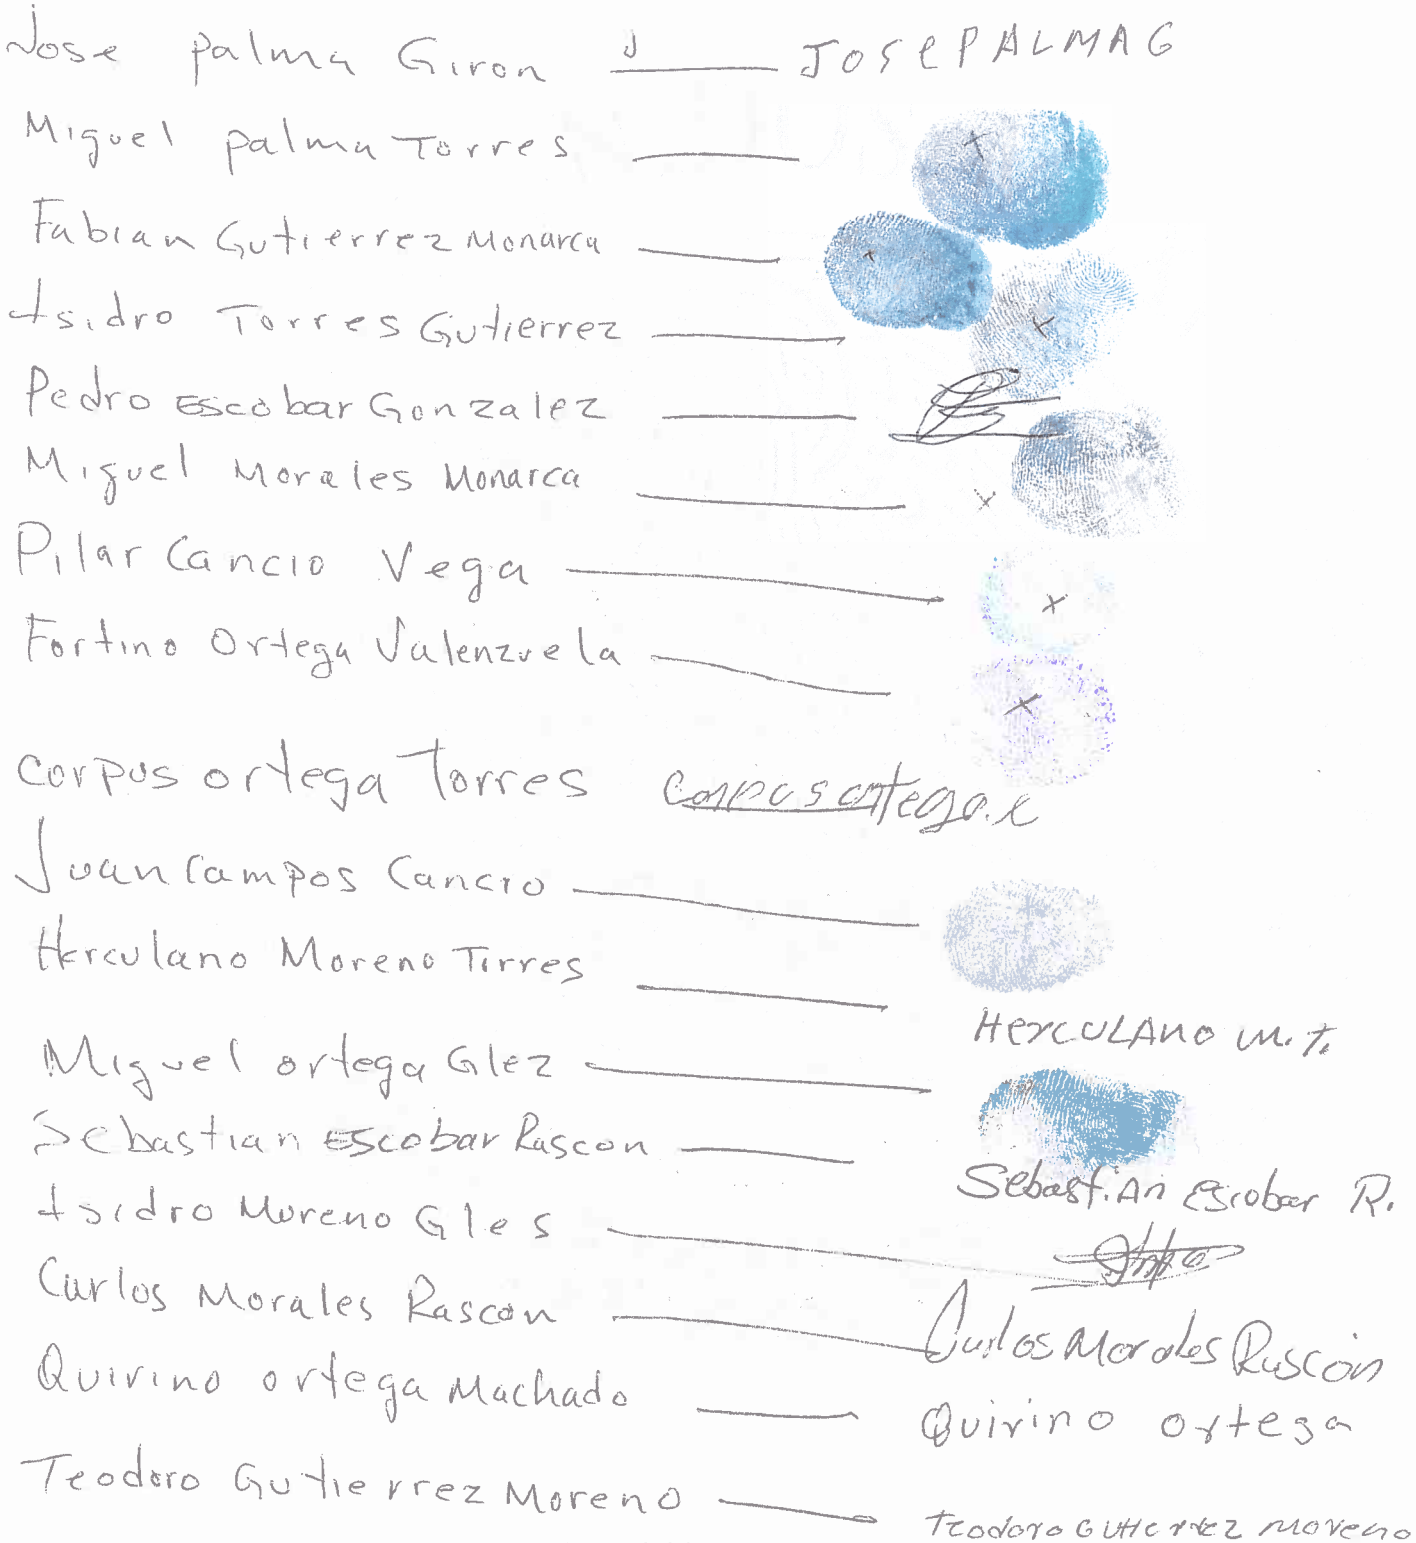 Jose palma Giron J JOSE PALMA G
Miguel palma Torres X
Fabian Gutierrez Monarca X
Isidro Torres Gutierrez X
Pedro Escobar Gonzalez
Miguel Morales Monarca X
Pilar Cancio Vega X
Fortino Ortega Valenzuela X
Corpus ortega Torres Corpus ortega.
Juan Campos Cancio
Herculano Moreno Torres HERCULANO M. T.
Miguel ortega Glez
Sebastian Escobar Rascon Sebastian Escobar R.
Isidro Moreno Gles
Carlos Morales Rascon Carlos Morales Rascón
Quirino ortega Machado Quirino ortega
Teodoro Gutierrez Moreno Teodoro Gutierrez Moreno